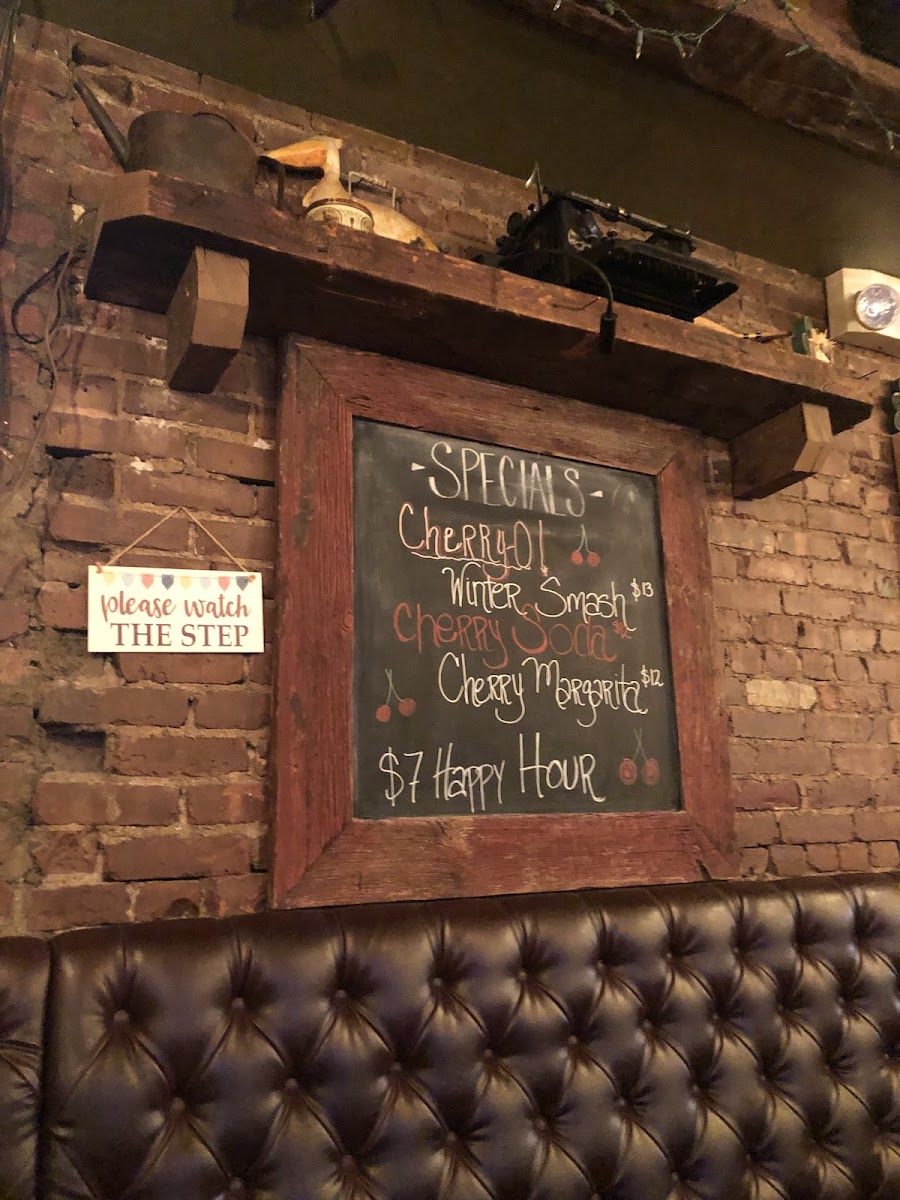 please watch
THE STEP
-SPECIALS-
Cherry-O!
Winter Smash $13
Cherry Soda
Cherry Margarita $12
$7 Happy Hour